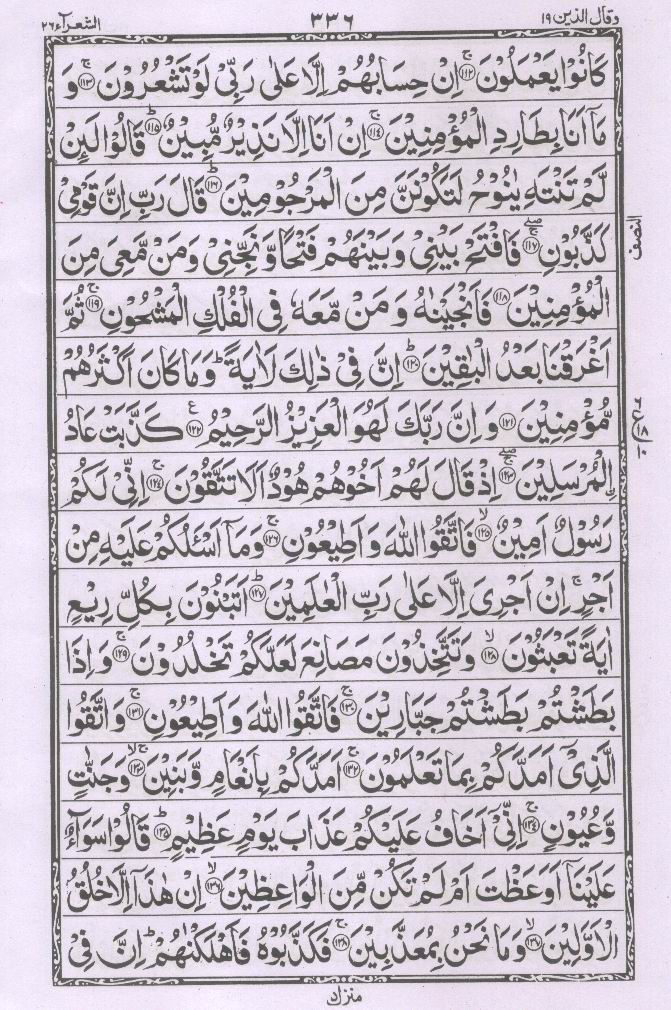 وقال الذين ١٩ ٣٣٦ الشعرآء ٢٦
كَانُوْا يَعْمَلُوْنَ ﴿۱۱۲﴾ۚ اِنْ حِسَابُهُمْ اِلَّا عَلٰى رَبِّىْ لَوْ تَشْعُرُوْنَ ﴿۱۱۳﴾ۚ وَ
مَاۤ اَنَا بِطَارِدِ الْمُؤْمِنِيْنَ ﴿۱۱۴﴾ۚ اِنْ اَنَا اِلَّا نَذِيْرٌ مُّبِيْنٌ ﴿۱۱۵﴾ؕ قَالُوْا لَئِنْ
لَّمْ تَنْتَهِ يٰنُوْحُ لَتَكُوْنَنَّ مِنَ الْمَرْجُوْمِيْنَ ﴿۱۱۶﴾ؕ قَالَ رَبِّ اِنَّ قَوْمِىْ
كَذَّبُوْنِ ﴿۱۱۷﴾ۚۖ فَافْتَحْ بَيْنِىْ وَبَيْنَهُمْ فَتْحًا وَّنَجِّنِىْ وَمَنْ مَّعِىَ مِنَ
الْمُؤْمِنِيْنَ ﴿۱۱۸﴾ فَاَنْجَيْنٰهُ وَمَنْ مَّعَهٗ فِى الْفُلْكِ الْمَشْحُوْنِ ﴿۱۱۹﴾ۚ ثُمَّ
اَغْرَقْنَا بَعْدُ الْبٰقِيْنَ ﴿۱۲۰﴾ؕ اِنَّ فِىْ ذٰلِكَ لَاٰيَةً ؕ وَمَا كَانَ اَكْثَرُهُمْ
مُّؤْمِنِيْنَ ﴿۱۲۱﴾ وَاِنَّ رَبَّكَ لَهُوَ الْعَزِيْزُ الرَّحِيْمُ ﴿۱۲۲﴾ع كَذَّبَتْ عَادُ
اۨلْمُرْسَلِيْنَ ﴿۱۲۳﴾ۚۖ اِذْ قَالَ لَهُمْ اَخُوْهُمْ هُوْدٌ اَلَا تَتَّقُوْنَ ﴿۱۲۴﴾ۚ اِنِّىْ لَكُمْ
رَسُوْلٌ اَمِيْنٌ ﴿۱۲۵﴾ۙ فَاتَّقُوا اللّٰهَ وَاَطِيْعُوْنِ ﴿۱۲۶﴾ۚ وَمَاۤ اَسْئَلُكُمْ عَلَيْهِ مِنْ
اَجْرٍ ۚ اِنْ اَجْرِىَ اِلَّا عَلٰى رَبِّ الْعٰلَمِيْنَ ﴿۱۲۷﴾ؕ اَتَبْنُوْنَ بِكُلِّ رِيْعٍ
اٰيَةً تَعْبَثُوْنَ ﴿۱۲۸﴾ۙ وَتَتَّخِذُوْنَ مَصَانِعَ لَعَلَّكُمْ تَخْلُدُوْنَ ﴿۱۲۹﴾ۚ وَاِذَا
بَطَشْتُمْ بَطَشْتُمْ جَبَّارِيْنَ ﴿۱۳۰﴾ۚ فَاتَّقُوا اللّٰهَ وَاَطِيْعُوْنِ ﴿۱۳۱﴾ۚ وَاتَّقُوا
الَّذِىْۤ اَمَدَّكُمْ بِمَا تَعْلَمُوْنَ ﴿۱۳۲﴾ۚ اَمَدَّكُمْ بِاَنْعَامٍ وَّبَنِيْنَ ﴿۱۳۳﴾ۚۙ وَجَنّٰتٍ
وَّعُيُوْنٍ ﴿۱۳۴﴾ۚ اِنِّىْۤ اَخَافُ عَلَيْكُمْ عَذَابَ يَوْمٍ عَظِيْمٍ ﴿۱۳۵﴾ؕ قَالُوْا سَوَآءٌ
عَلَيْنَاۤ اَوَعَظْتَ اَمْ لَمْ تَكُنْ مِّنَ الْوَاعِظِيْنَ ﴿۱۳۶﴾ۙ اِنْ هٰذَاۤ اِلَّا خُلُقُ
الْاَوَّلِيْنَ ﴿۱۳۷﴾ۙ وَمَا نَحْنُ بِمُعَذَّبِيْنَ ﴿۱۳۸﴾ۚ فَكَذَّبُوْهُ فَاَهْلَكْنٰهُمْ ؕ اِنَّ فِىْ
النصف
منزل